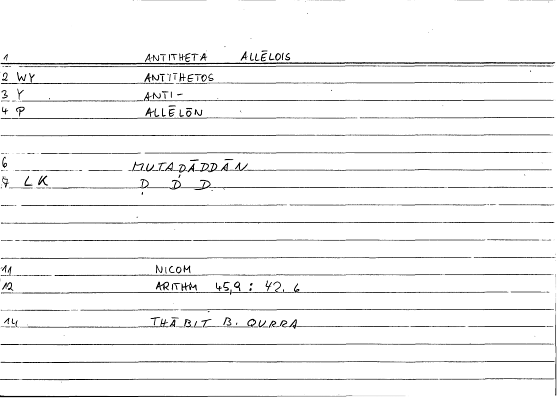 1 ANTITHETA ALLĒLOIS
2 WY ANTITHETOS
3 Y ANTI-
4 P ALLĒLŌN
6 MUTAḌĀDDĀN
7 LK Ḍ D D
11 NICOM
12 ARITHM 45,9 : 42. 6
14 THĀBIT B. QURRA